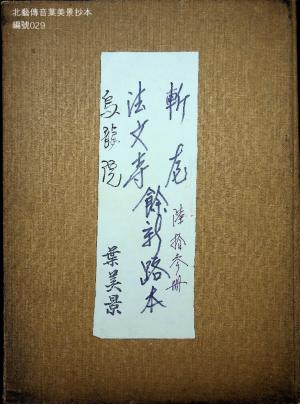 北藝傳音葉美景抄本
編號029
斬尾
陸拾参冊
法文寺餘新路本
烏龍院
葉美景